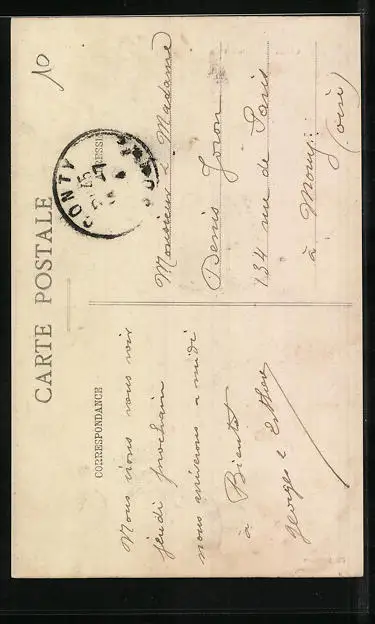 10
CARTE POSTALE
CORRESPONDANCE
ADRESSE
CONTY
15
Nous irons vous voir
jeudi prochain
nous arriverons a midi
à Bientot
Georges e Esther
Monsieur Madame
Denis
134 rue de Paris
à Mouy
(oise)